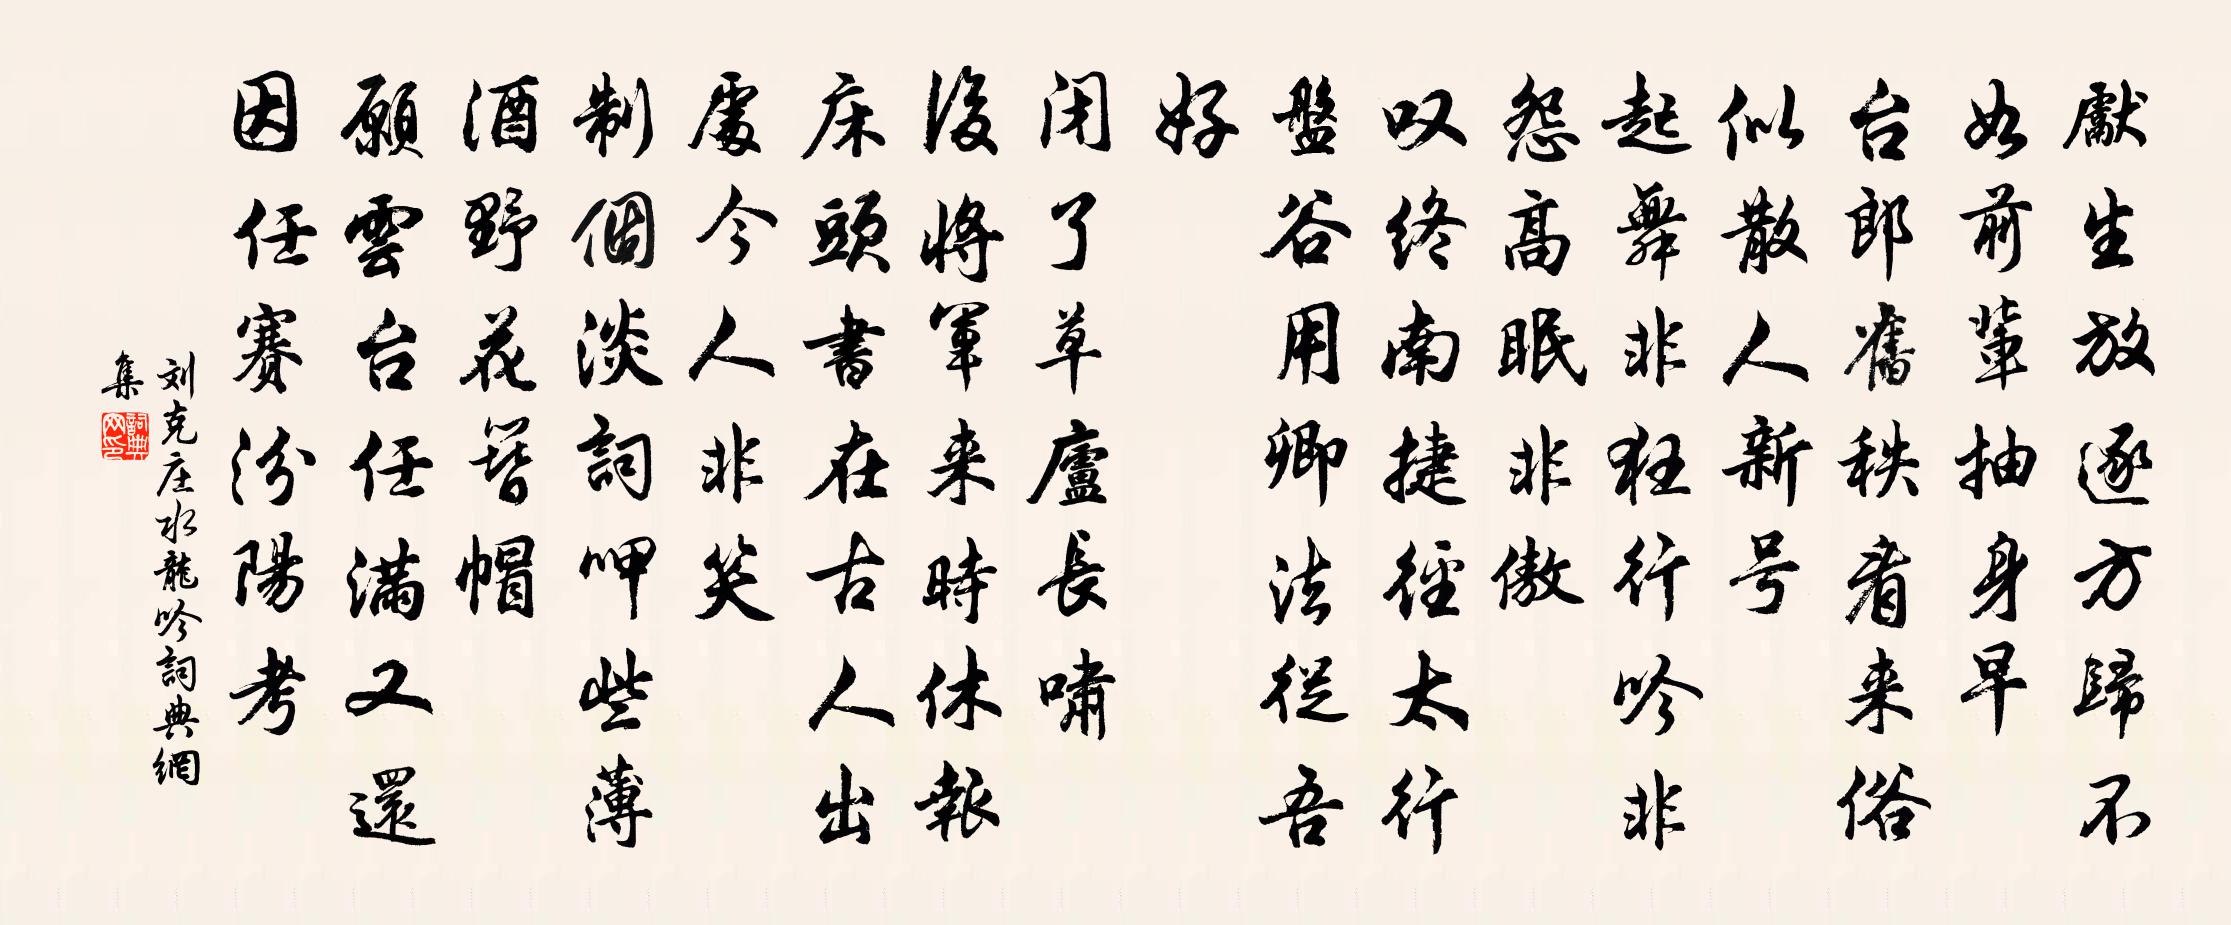 獻生放逐方歸不
如前輩抽身早
台郎舊秩看来俗
似散人新号
起舞非狂行吟非
怨高眠非傲
叹终南捷徑太行
盤谷用卿法従吾
好
闭了草廬長嘯
後將軍来時休報
床頭書在古人出
處今人非笑
制個淡詞呷些薄
酒野花簪帽
願雲台任满又還
因任赛汾陽考
刘克庄水龍吟詞典網
集
詞典网印